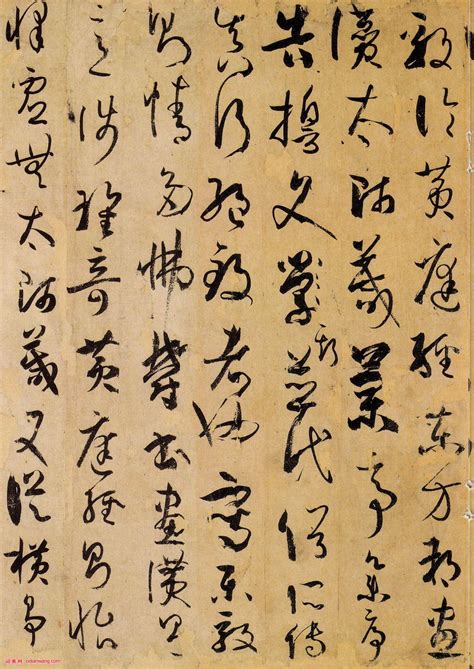 毅論黃庭經東方朔畫
讚太師箴蘭亭集序
告誓文斯並代俗所傳
真行絕致者也寫樂毅
則情多怫鬱書畫讚則
意涉瑰奇黃庭經則怡
懌虛無太師箴又從橫爭
cidianwang.com